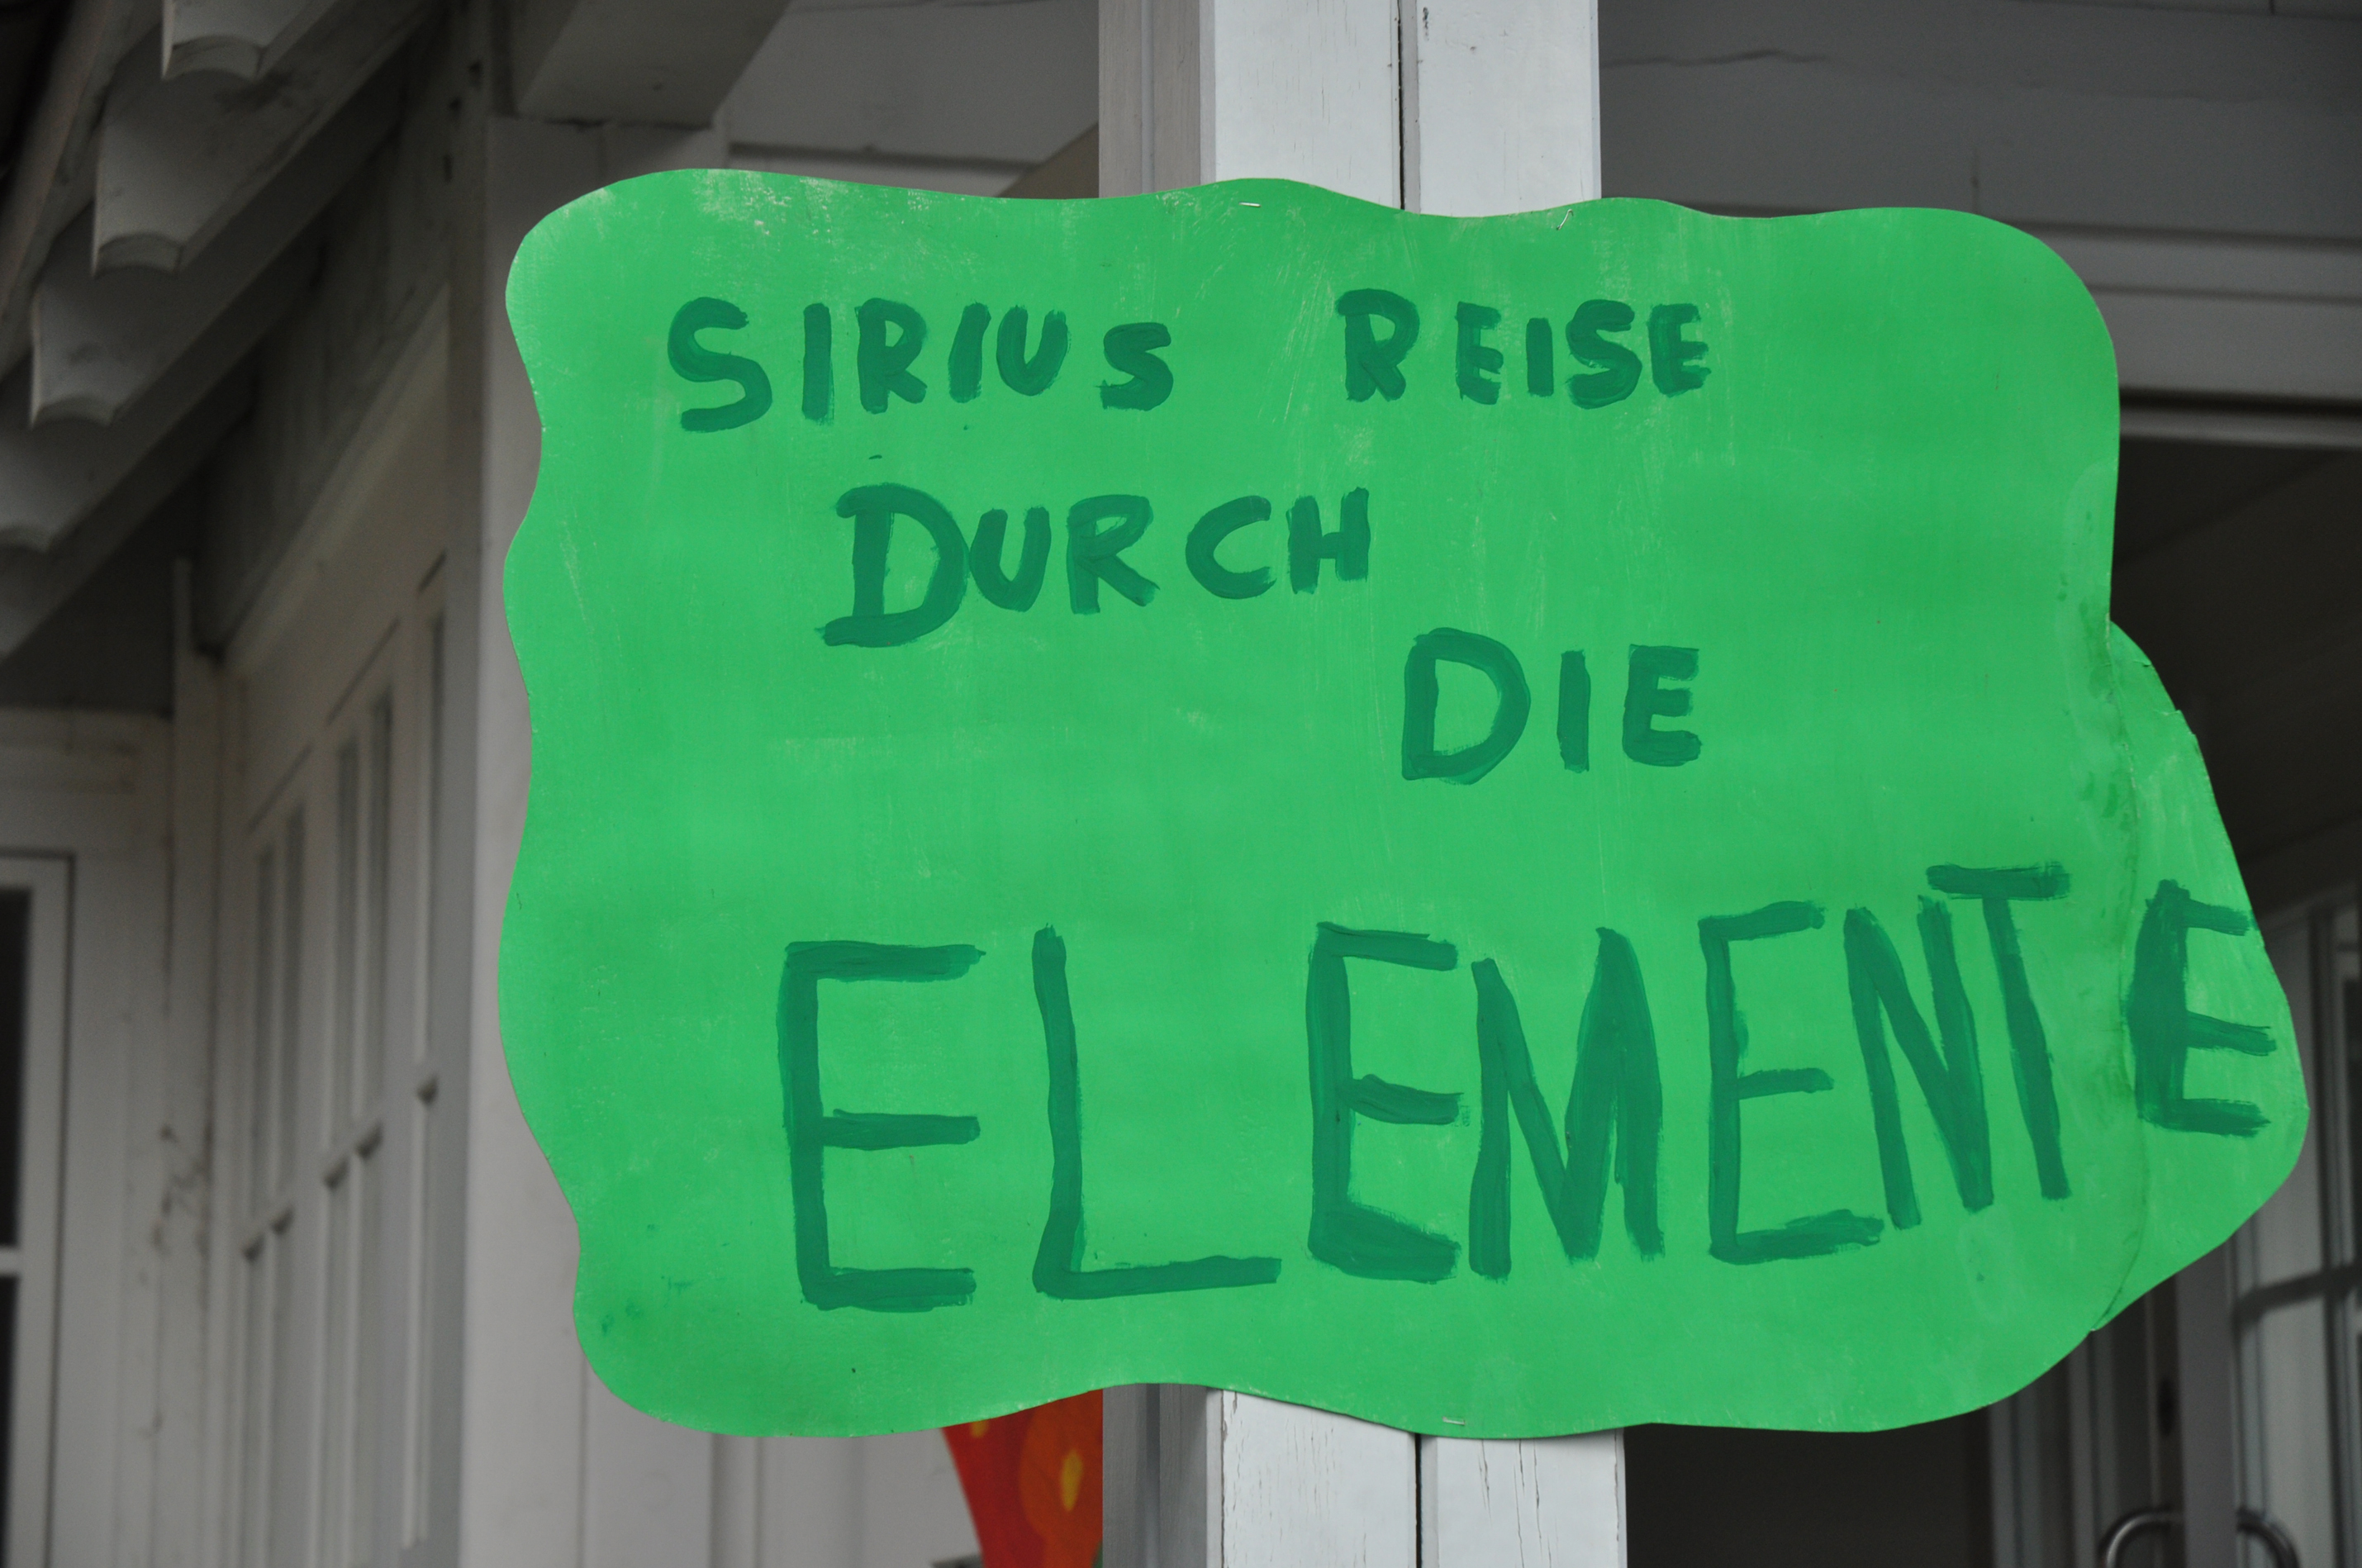 SIRIUS REISE
DURCH
DIE
ELEMENTE